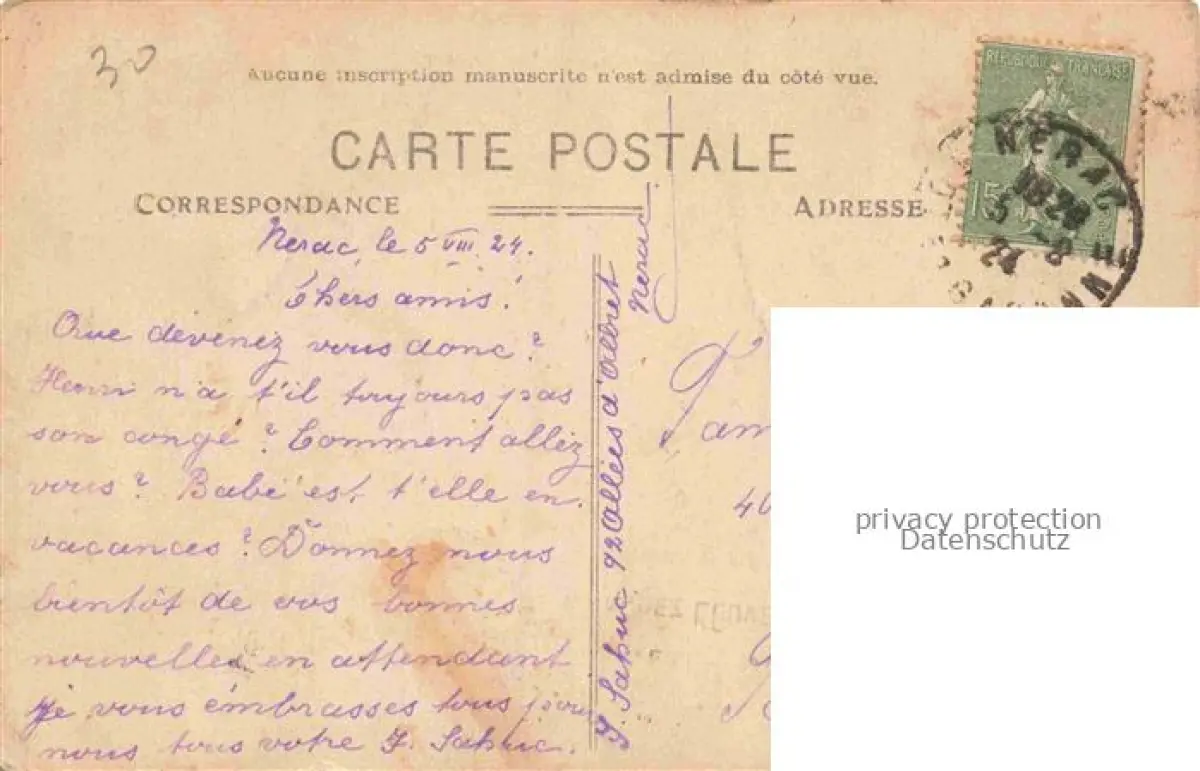 30
Aucune inscription manuscrite n'est admise du côté vue.
CARTE POSTALE
CORRESPONDANCE
ADRESSE
RÉPUBLIQUE FRANÇAISE
15
NERAC
Nerac, le 5 VIII. 24.
Chers amis!
Que devenez vous donc?
Henri n'a t'il toujours pas
son congé? Comment allez
vous? Babé est t'elle en
vacances? Donnez nous
bientôt de vos bonnes
nouvelles en attendant
je vous embrasses tous pour
nous tous votre J. Sahuc.
J. Sahuc 92 Allées d'Albret
Nerac
40
privacy protection
Datenschutz